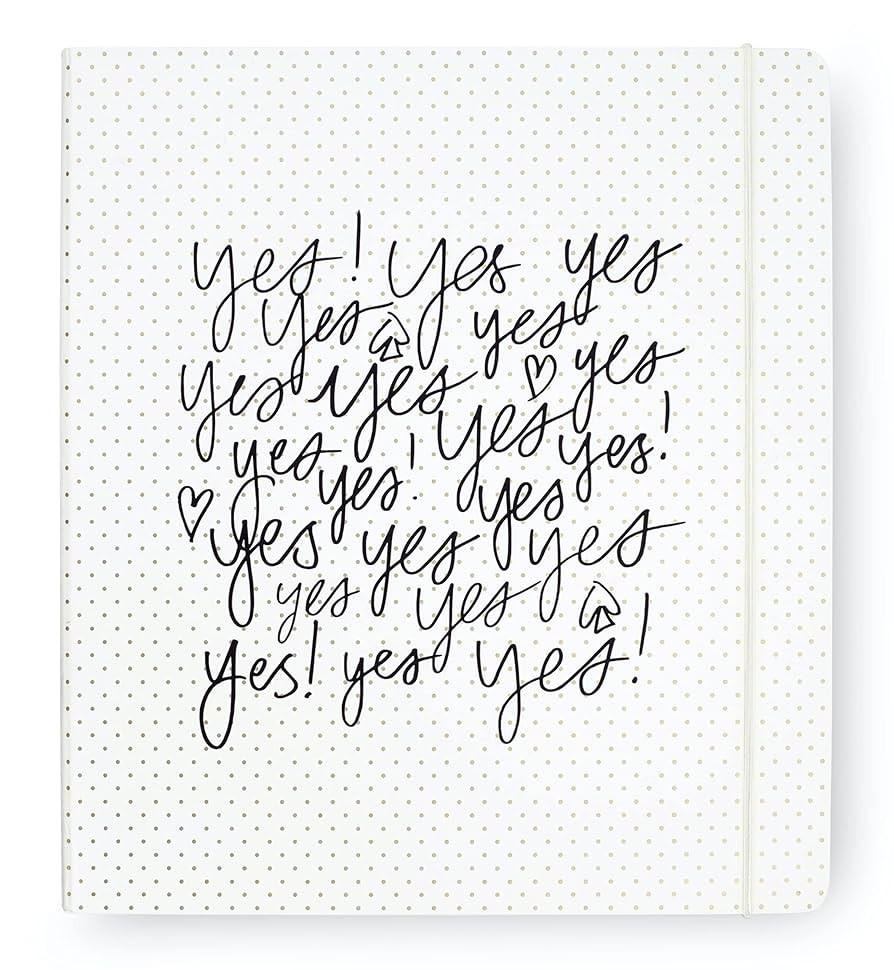 yes! yes yes
yes yes
yes yes yes
yes yes! yes yes yes!
yes yes yes
yes yes
yes! yes yes!